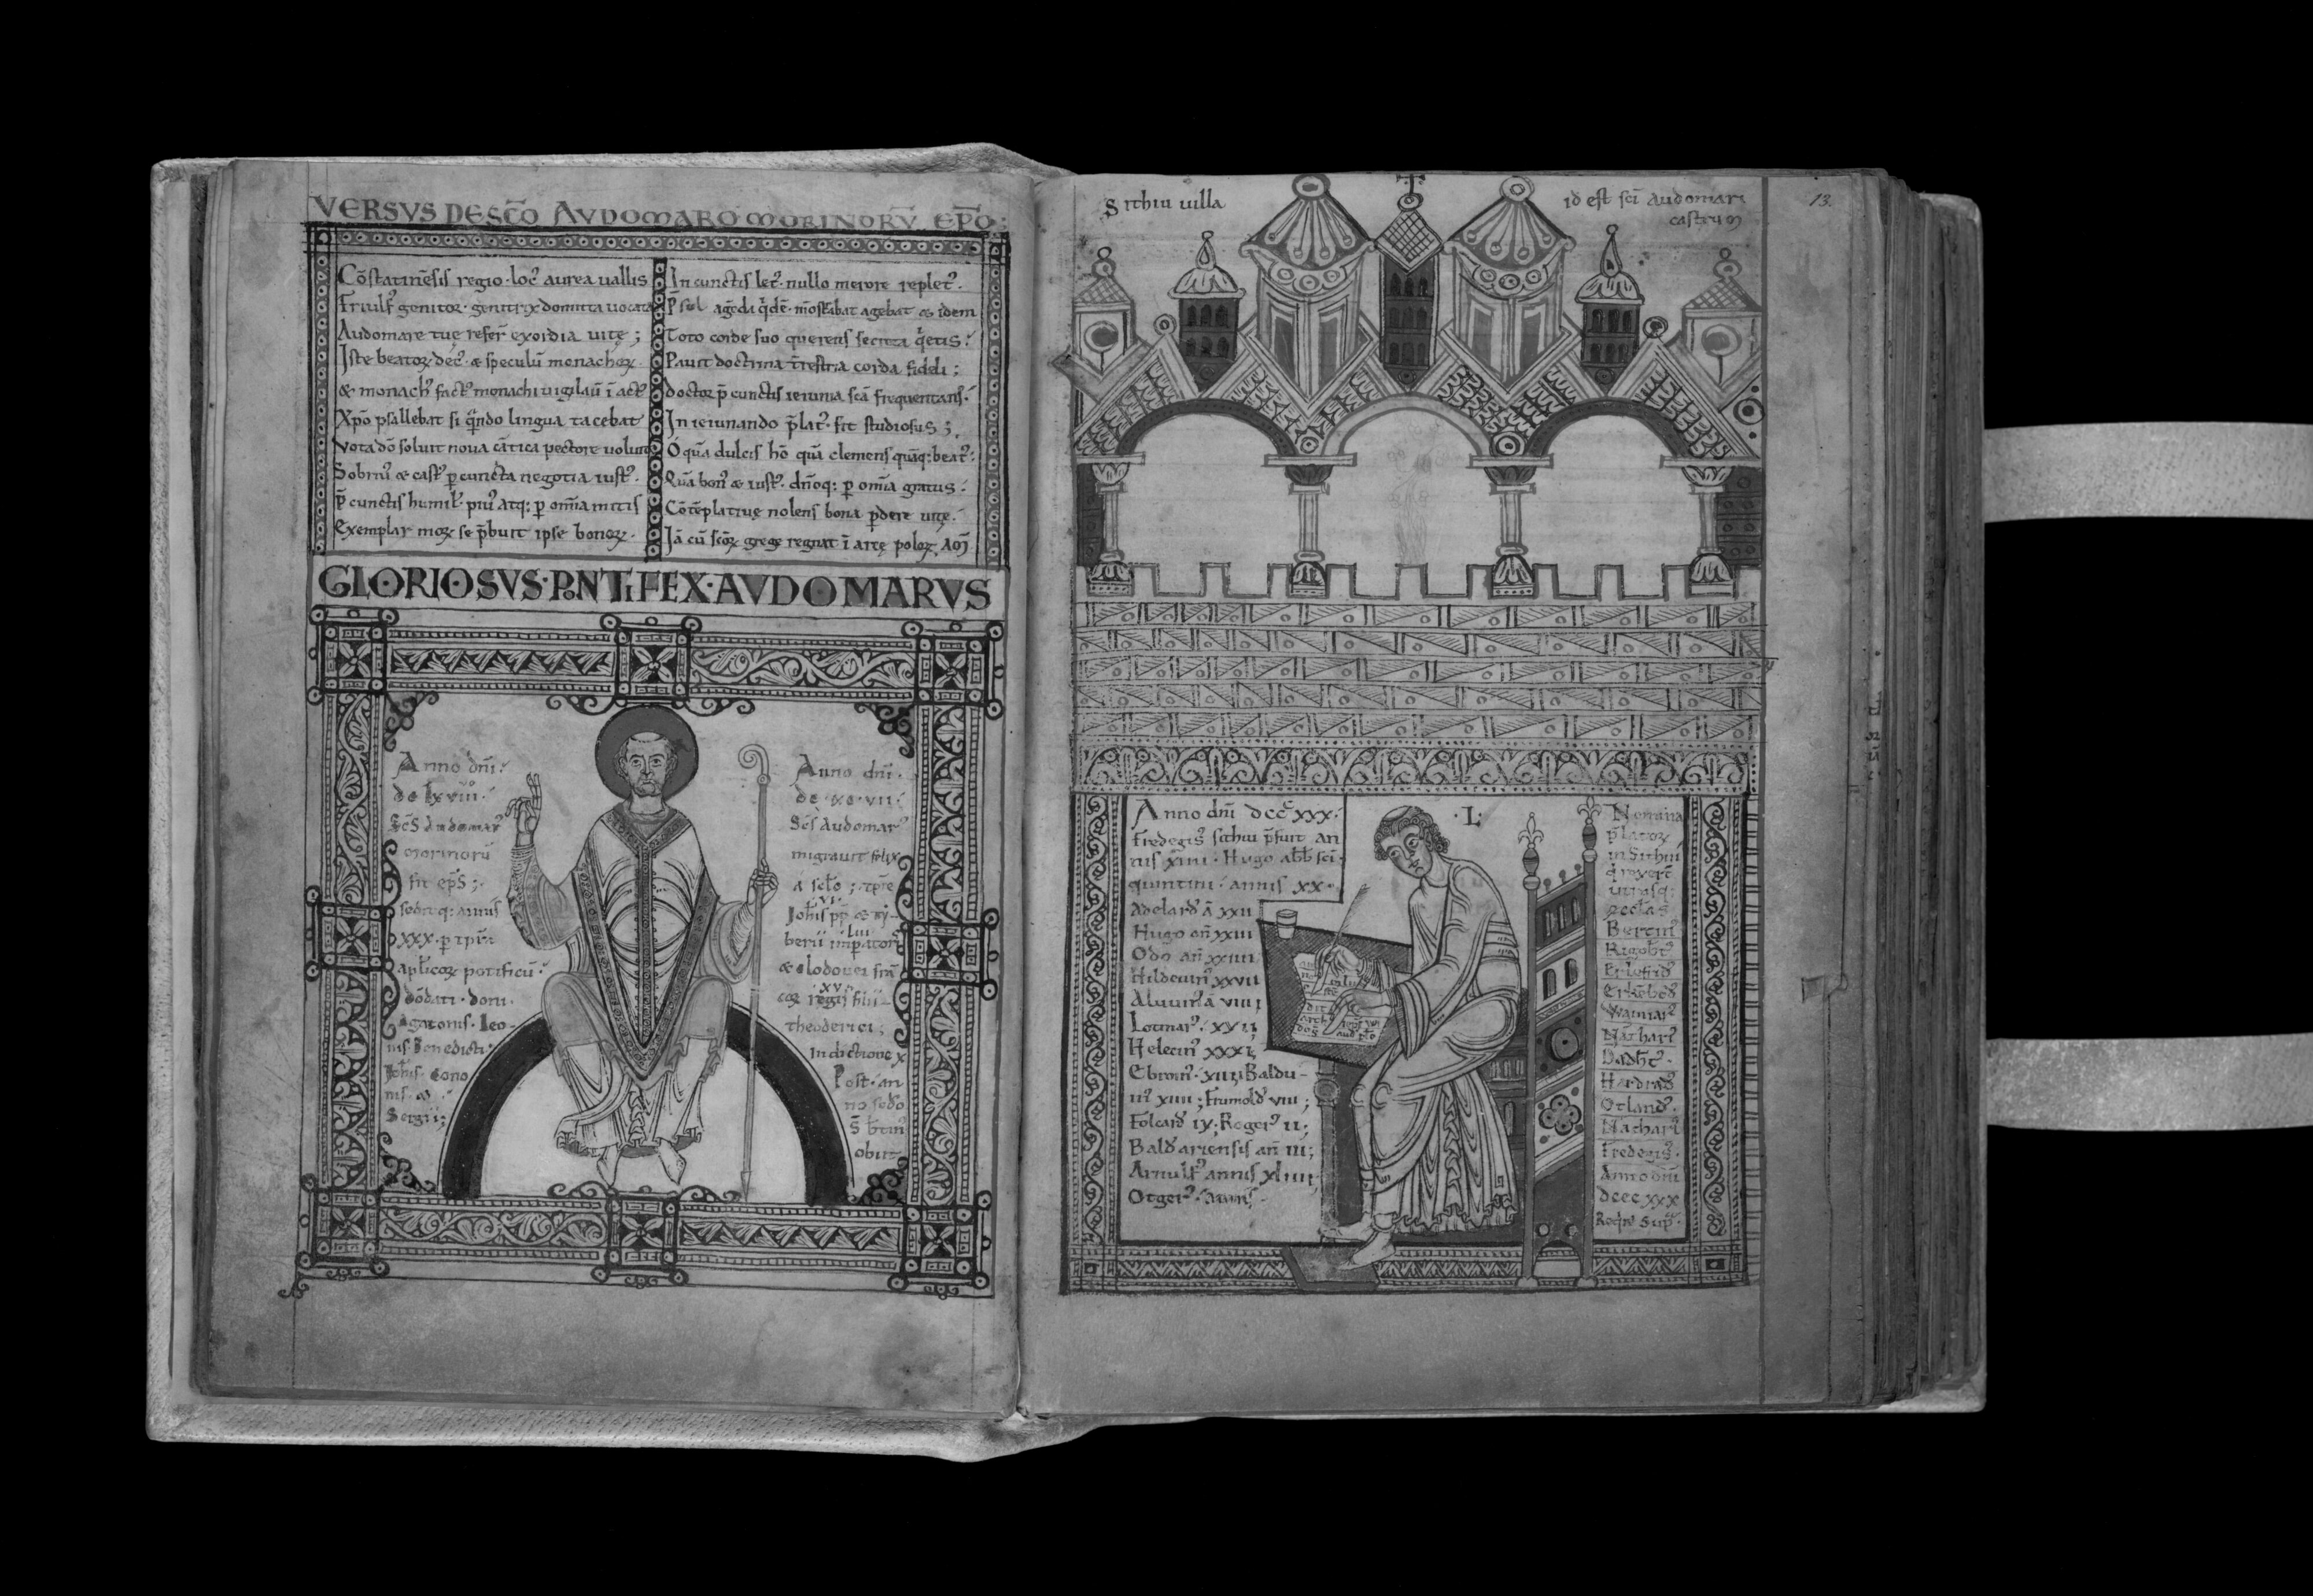 VERSVS DE SCO AVDOMARO MORINORV EPO:
Cōstatinēsis regio · loc' aurea uallis
Friulf' genitor · genitrix domitta uocata
Audomare tuę refert exordia uitę ;
Iste beatoꝝ dec' & speculū monachoꝝ
& monach' fact' monachi uigilau ī act'
Xp̄o psallebat si q̄ndo lingua tacebat
Vota dō soluit noua cātica pectore uoluit
Sobrius & cast' p cuncta negotia iust' ·
p̄ cunctis humil' pius atq: p om̄ia mitis
Exemplar moꝝ se p̄buit ipse bonoꝝ ·
In cunctis let' nullo merore replet' ·
agēda q̄dē · mōstrabat agebat & idem
Toto corde suo querens secreta q̄etis :
Pauit doctrina t̄restria corda fideli ;
doctor p̄ cunctis ieiunia scā frequentans :
In ieiunando p̄lat' fit studiosus ;
O quā dulcis hō quā clemens quāq: beat' :
Quā bon' & iust' · dn̄oq: p om̄ia gratus :
Cōtēplatiuę nolens bona pdere uitę :
Iā cū scōꝝ grege regnat ī arce poloꝝ AM̄
GLORIOSVS · PONTIFEX · AVDOMARVS
Anno dn̄i :
dc lxviiii :
Sc̄s Audomar'
morinorū
fit ep̄s ; ·
sedit q: annis
xxx · p tp̄ra
ap̄licoꝝ pōtificū :
dōdati · doni ·
Agatonis · Leo-
nis · Benedicti ·
Ioh̄is · Cono
nis · ac
Sergii ;
Anno dn̄i ·
dc · xc · vii :
Sc̄s Audomar'
migrauit felix
a sclo ; tp̄re
Ioh̄is pp̄ vi & ty-
berii imp̄atoris
& clodouei frān
coꝝ regis filii
theoderici ;
Indictione x
Post · an
no sc̄do
S b̄tin'
obiit
Sithiu uilla
id est sc̄i Audomari
castrum
13.
Anno dn̄i dccc xxx ·
Fredegis' sithiu p̄fuit an
nis xiiii · Hugo abb sc̄i
quintini · annis xx ·
Adelard' ā xxii
Hugo an̄ xxiii
Odo an̄ xxiiii
Hilduin' xxvii
Aluuin' ā viiii
Lotmar' · xxii
Helecin' xxxi
Ebroin' · xiiii Baldu-
in' xiiii ; Frumold' viii ;
Folcard' ix ; Roger' ii ;
Bald' ariensis an̄ iii ;
Arnulf' annis xliiii ;
Otger' · annis ·
· L ·
Nomina
p̄latoꝝ
in Sithiu
q̄ rexert
utrasq:
ęcclas
Bertin'
Rigob̄t'
Erlefrid'
Erkēbod'
Waimar'
Nāthar'
Dadb̄t' ·
Hardrad'
Otland' ·
Nāthari'
Fredegis' ·
Anno dn̄i
dccc xxx
Reqr̄ sup̄ ·